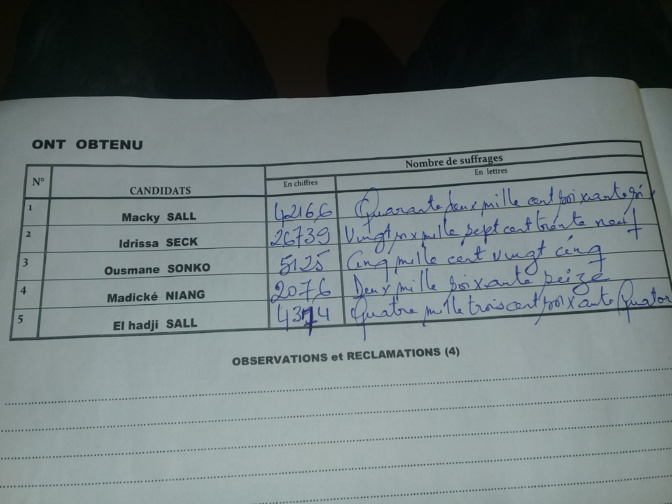 ONT OBTENU
N° CANDIDATS Nombre de suffrages
En chiffres En lettres
1 Macky SALL 42166 Quarante deux mille cent soixante six
2 Idrissa SECK 26739 Vingt six mille sept cent trente neuf
3 Ousmane SONKO 5125 Cinq mille cent vingt cinq
4 Madické NIANG 2076 Deux mille soixante seize
5 El hadji SALL 4374 Quatre mille trois cent soixante Quator
OBSERVATIONS et RECLAMATIONS (4)